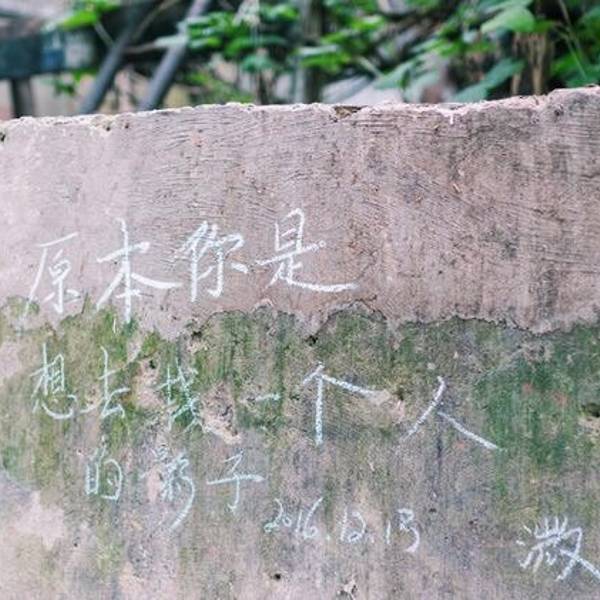 原本你是
想去找一个人
的影子
2016.12.13